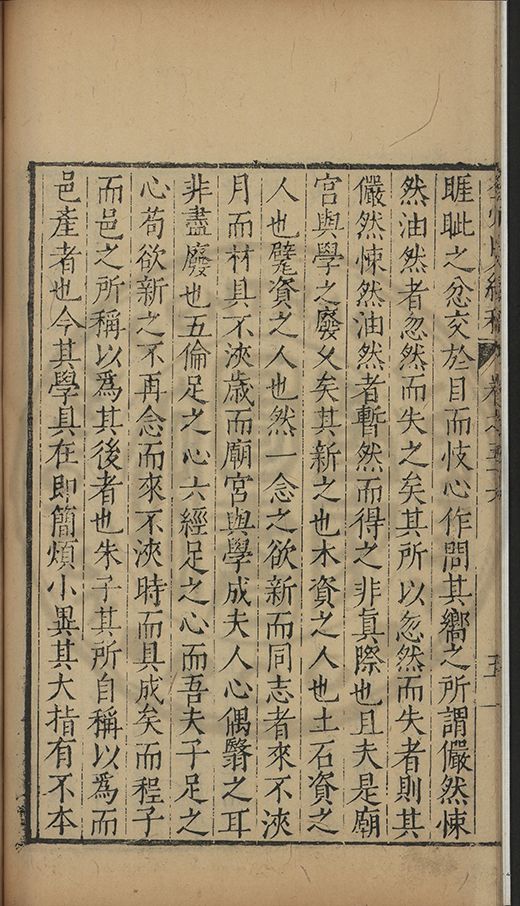 睚眦之忿交於目而忮心作問其嚮之所謂儼然悚
然油然者忽然而失之矣其所以忽然而失者則其
儼然悚然油然者暫然而得之非真際也且夫是廟
宮與學之廢久矣其新之也木資之人也土石資之
人也甓資之人也然一念之欲新而同志者來不浹
月而材具不浹歲而廟宮與學成夫人心偶翳之耳
非盡廢也五倫足之心六經足之心而吾夫子足之
心苟欲新之不再念而來不浹時而具成矣而程子
而邑之所稱以爲其後者也朱子其所自稱以爲而
邑產者也今其學具在即簡煩小異其大指有不本